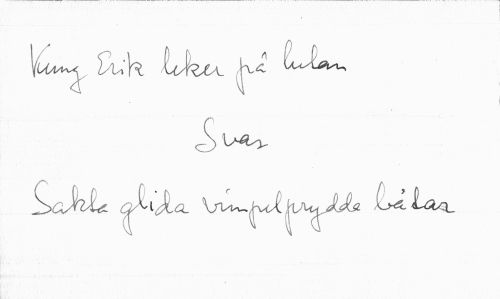 Kung Erik leker på lutan
Svar
Sakta glida vimpelprydda båtar